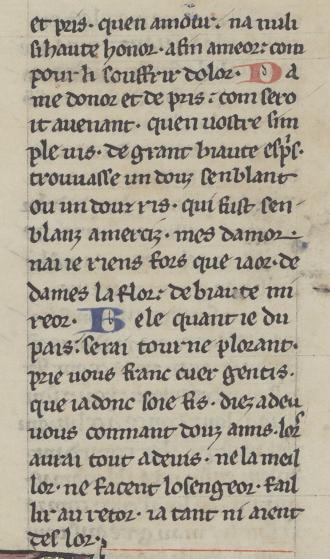 et pris · quen amour · na nuli
si haute honor · a fin ameor: com
pour li souffrir dolor · D a
me donor et de pris : com sero
it auenant · quen uostre sim
ple uis · de grant biaute esp's·
trouuasse un douz senblant
ou un douz ris · qui fust sen
blanz amerciz · mes damor
nai ie riens fors que iaor · de
dames la flor: de biaute mi
reor · B ele quant ie du
pais · serai tourne plorant ·
prie uous franc cuer gentis ·
que ia donc soie fis · diez adeu
uous conmant douz amis · lors
aurai tout a deuis · ne la meil
lor · ne facent losengeor · fail
lir au retor · ia tant ni aient
des lor ·